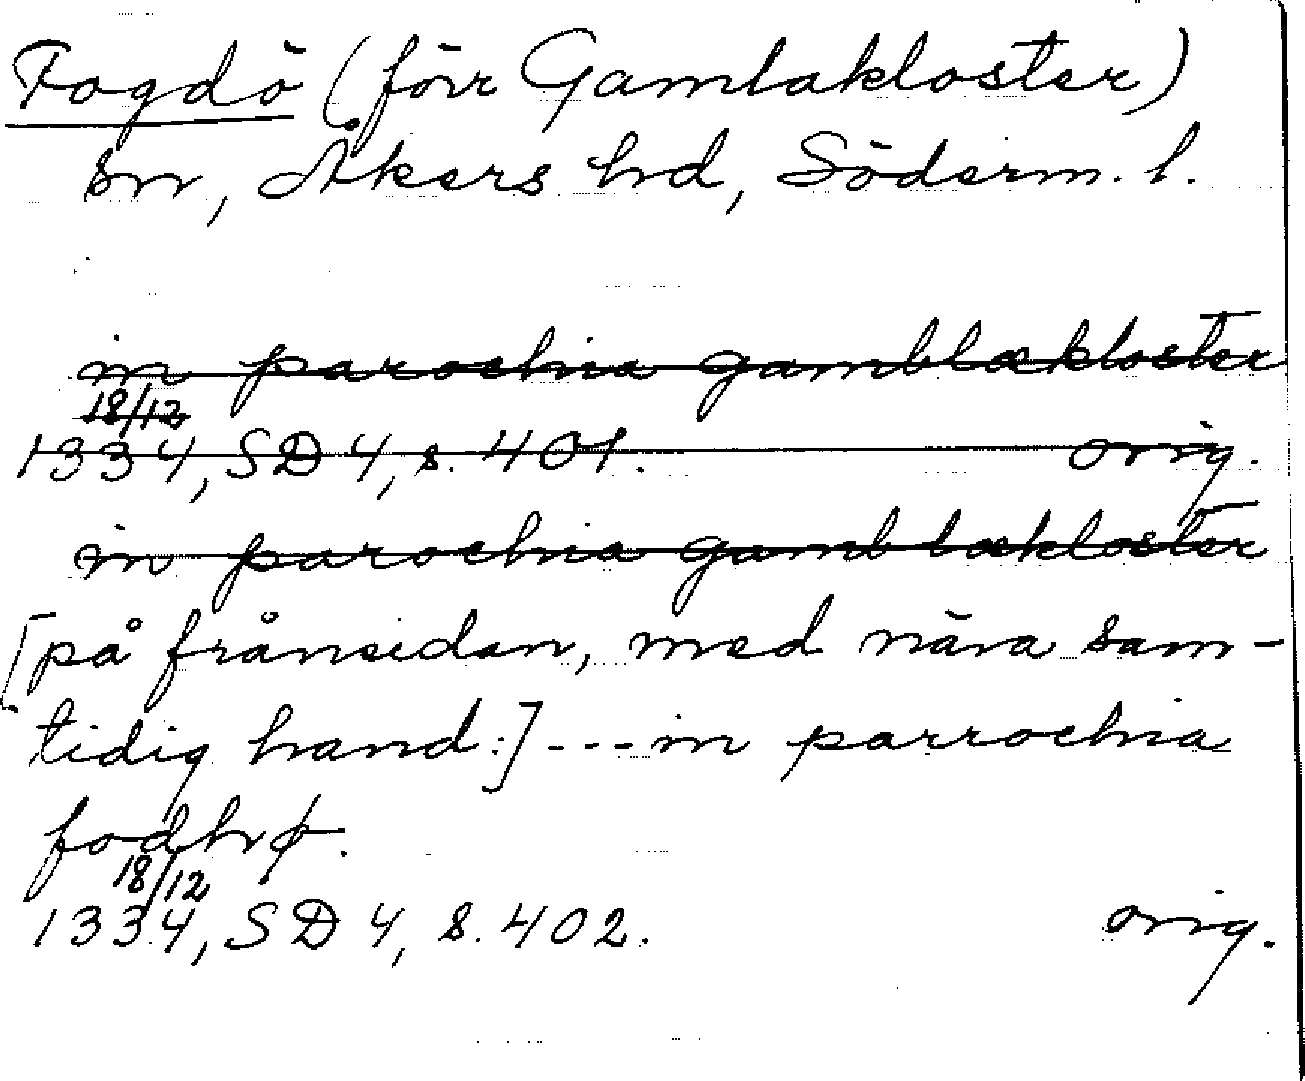 Fogdö (förr Gamlakloster)
sn, Åkers hd, Söderm. l.
in parochia gamblækloster
18/12
1334, SD 4, s. 401. orig.
in parochia gamblækloster
[på frånsidan, med nära sam-
tidig hand:] --- in parrochia
fodhø.
18/12
1334, SD 4, s. 402. orig.